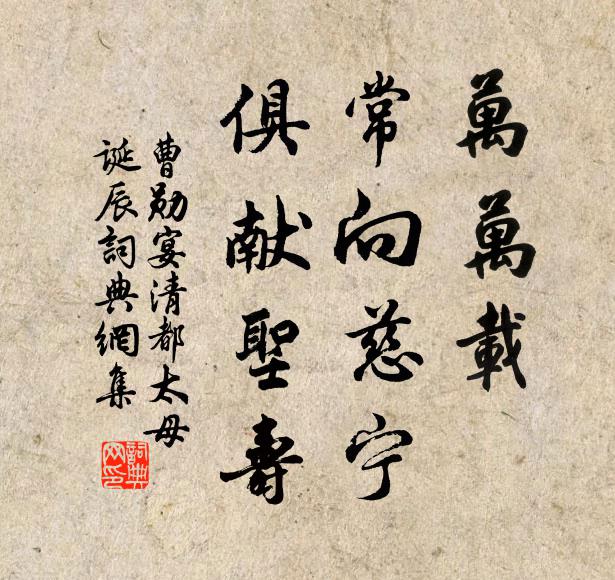 萬萬載
常向慈宁
俱献聖壽
曹勋宴清都太母
诞辰詞典網集
詞典
网印